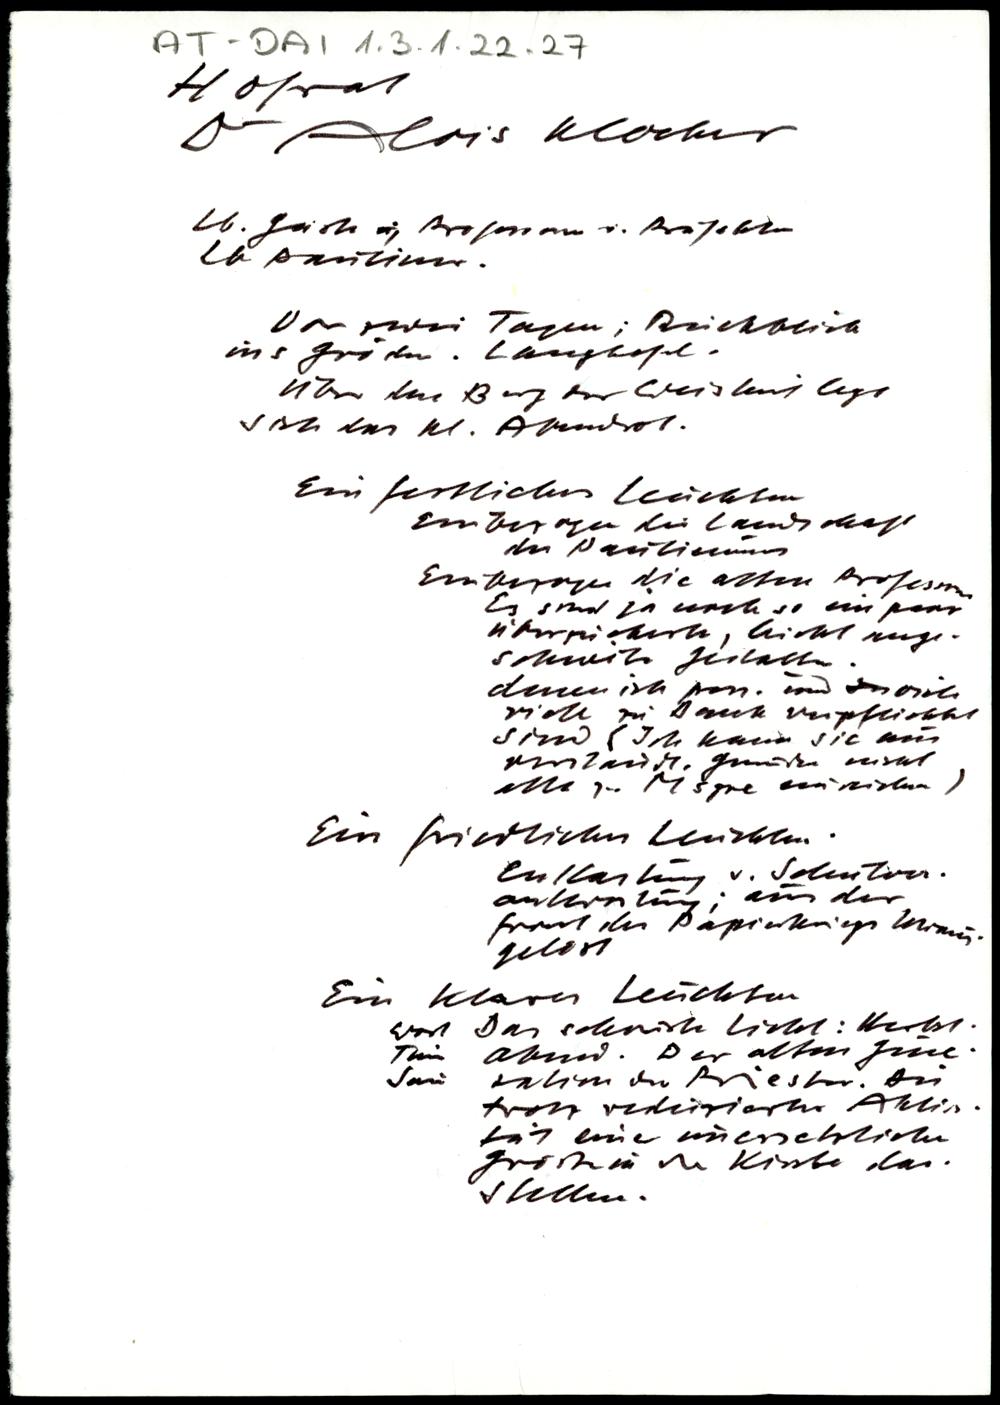 AT-DAI 1.3.1.22.27
Hofrat
Dr Alois Klocker
Lb. Gäste u. Professoren u. Präfekten
Lb Pauliner.
Vor zwei Tagen; Rückblick
ins Gröden. Langkofel.
Über den Berg der Weisheit legt
sich das kl. Abendrot.
Ein festliches Leuchten
Einbezogen die Landschaft
des Paulinums
Einbezogen die alten Professoren
Es sind ja noch so ein paar
überzuckerte, leicht ange-
schneite Gestalten.
denen ich pers. und
viele zu Dank verpflichtet
sind (Ich kann sie aus
verständl. Gründen nicht
alle zu Msgre einreichen)
Ein friedliches Leuchten.
Entlastung v. Schulver-
antwortung; aus der
Front des Papierkriegs heraus-
gelöst
Ein klares Leuchten
Das schönste Licht: Herbst-
abend. Der alten Gene-
ration der Priester. Die
trotz reduzierter Aktivi-
tät eine unersetzliche
Größe in der Kirche dar-
stellen.